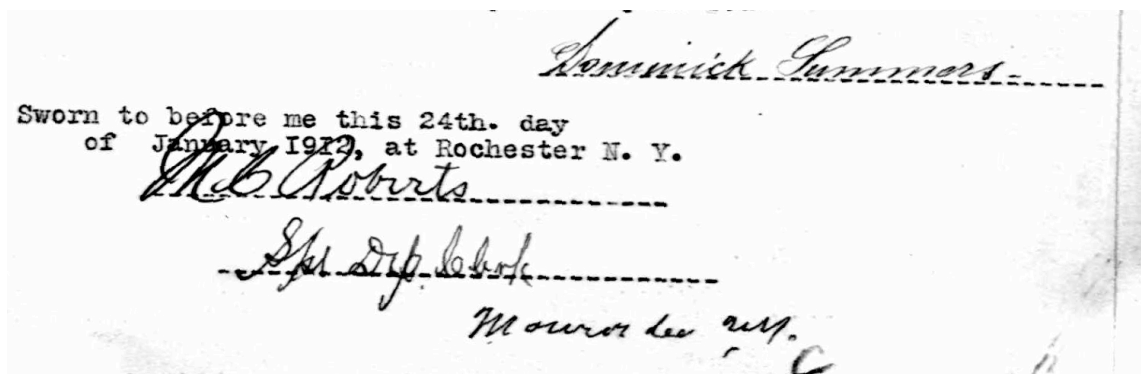 Dominick Summers
Sworn to before me this 24th. day
of January 1912, at Rochester N. Y.
M C Roberts
Spl Dep. Clerk
Monroe Co N.Y.